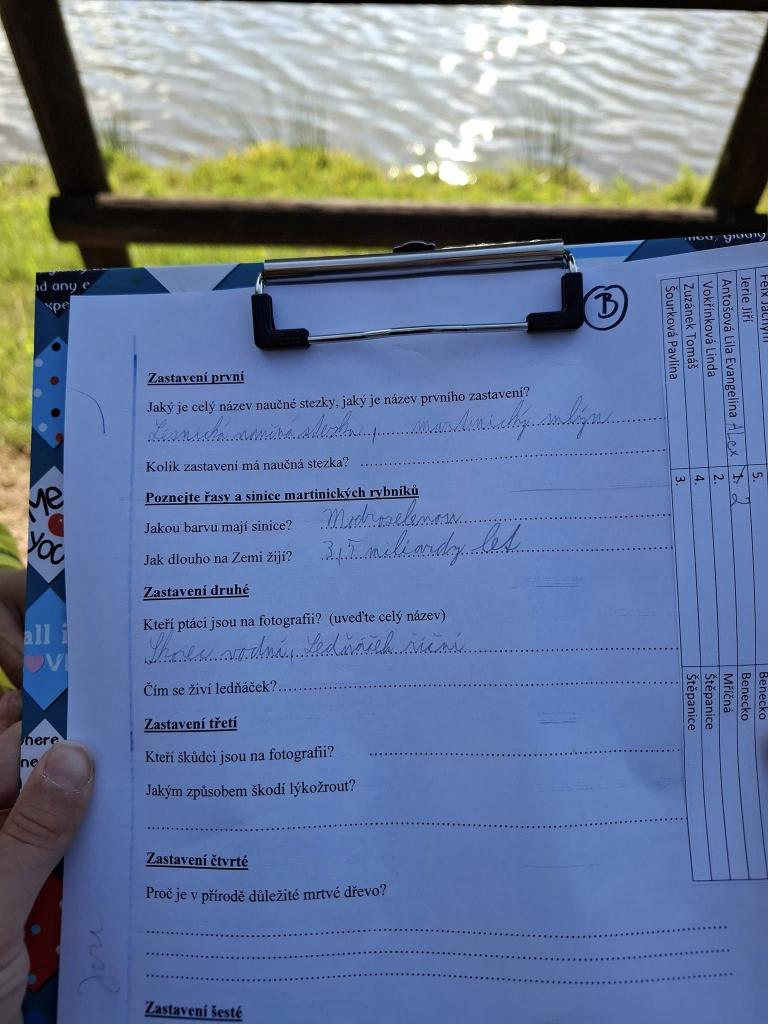 B
Zastavení první
Jaký je celý název naučné stezky, jaký je název prvního zastavení?
Lesnická naučná stezka, martinický mlýn
Kolik zastavení má naučná stezka?
Poznejte řasy a sinice martinických rybníků
Jakou barvu mají sinice? Modroselenou
Jak dlouho na Zemi žijí? 3,5 miliardy let
Zastavení druhé
Kteří ptáci jsou na fotografii? (uveďte celý název)
Skorec vodní, Ledňáček říční
Čím se živí ledňáček?
Zastavení třetí
Kteří škůdci jsou na fotografii?
Jakým způsobem škodí lýkožrout?
Zastavení čtvrté
Proč je v přírodě důležité mrtvé dřevo?
Zastavení šesté
Felix Jáchym 5. Benecko
Jerie Jiří 1. Benecko
Antošová Lila Evangelina Alex 2 Mříčná
Vokřínková Linda 2. Štěpanice
Zuzánek Tomáš 4. Štěpanice
Šourková Pavlína 3.
nd any
Me
you
all i
here
ne